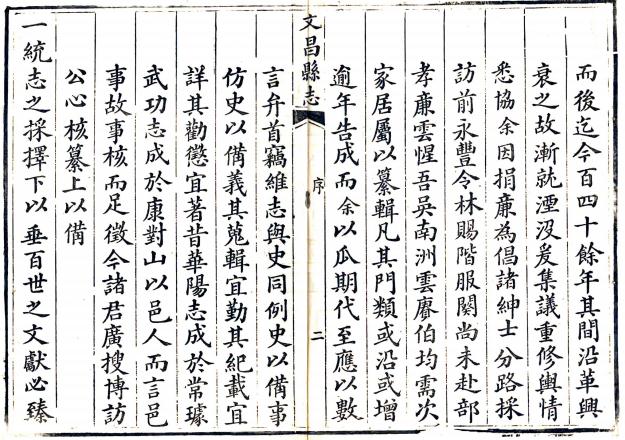 而後迄今百四十餘年其間沿革興
衰之故漸就湮沒爰集議重修輿情
悉協余因捐廉為倡諸紳士分路採
訪前永豐令林賜階服闋尚未赴部
孝廉雲惺吾吳南洲雲賡伯均需次
家居屬以纂輯凡其門類或沿或增
逾年告成而余以瓜期代至應以數
文昌縣志
序
二
言弁首竊維志與史同例史以備事
仿史以備義其蒐輯宜勤其紀載宜
詳其勸懲宜著昔華陽志成於常璩
武功志成於康對山以邑人而言邑
事故事核而足徵今諸君廣搜博訪
公心核纂上以備
一統志之採擇下以垂百世之文獻必臻